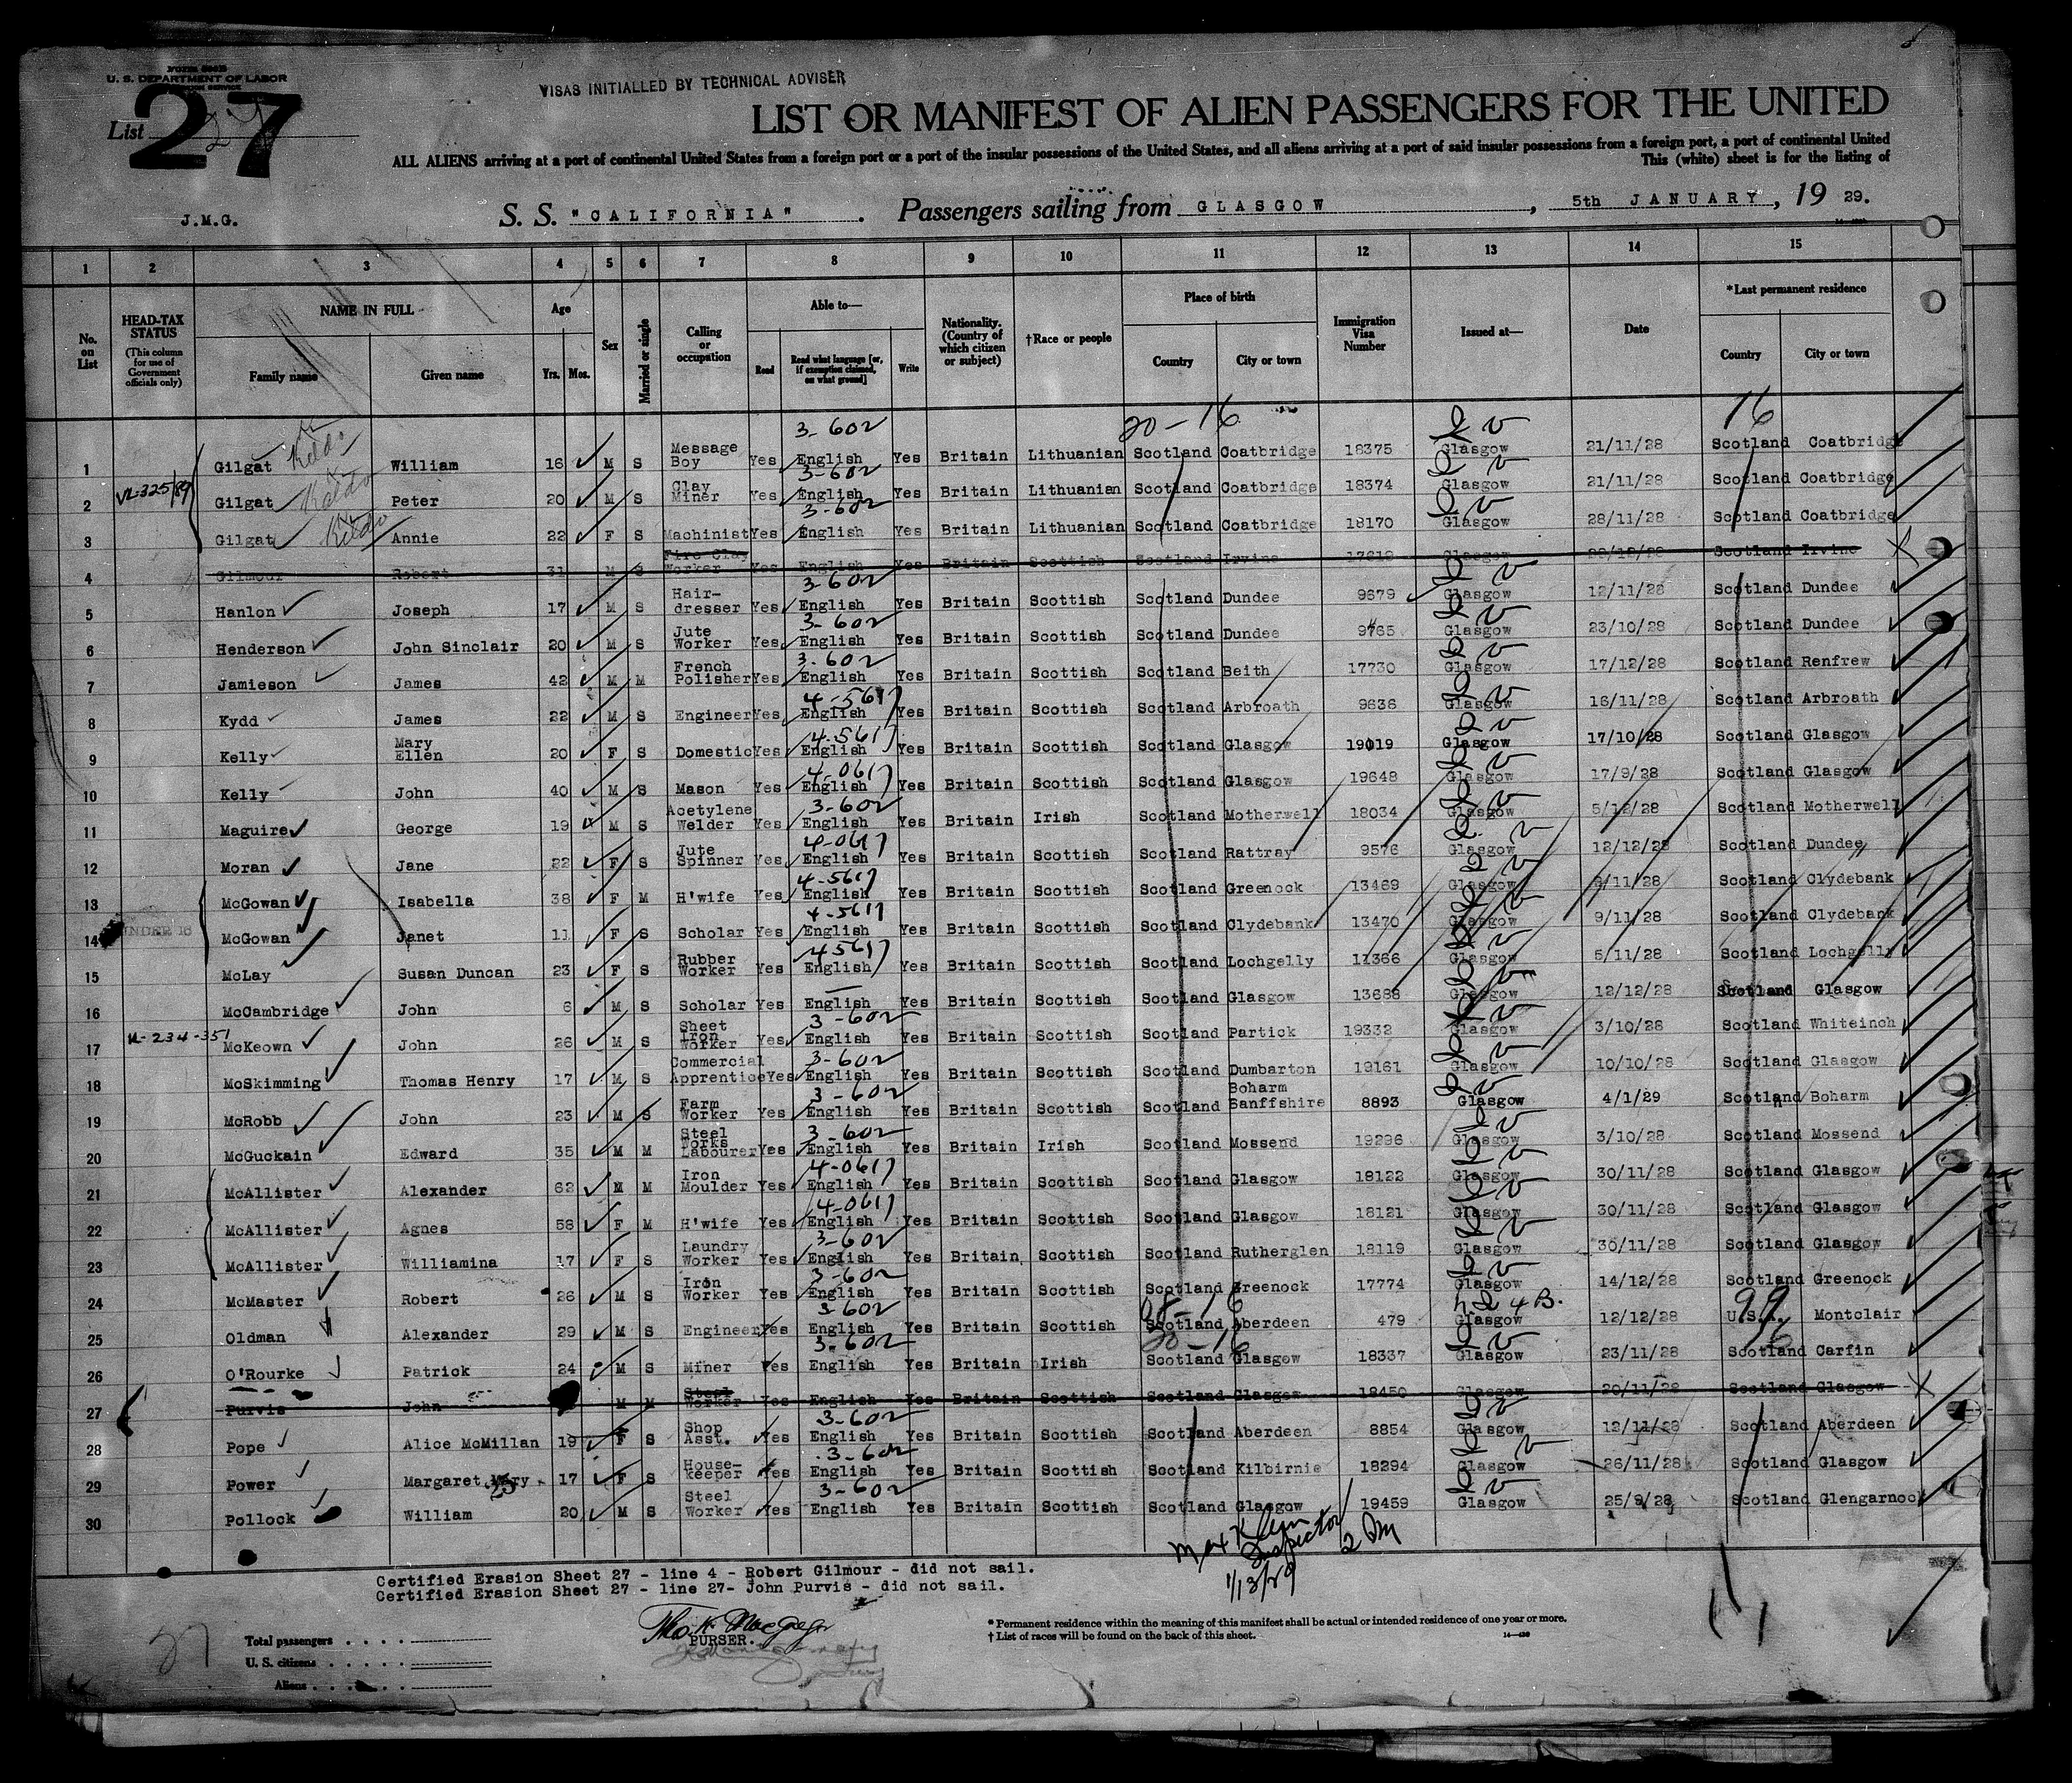 FORM 500B
U. S. DEPARTMENT OF LABOR
List 27
VISAS INITIALLED BY TECHNICAL ADVISER
LIST OR MANIFEST OF ALIEN PASSENGERS FOR THE UNITED
ALL ALIENS arriving at a port of continental United States from a foreign port or a port of the insular possessions of the United States, and all aliens arriving at a port of said insular possessions from a foreign port, a port of continental United
This (white) sheet is for the listing of
J.M.G. S. S. "CALIFORNIA". Passengers sailing from GLASGOW, 5th JANUARY, 19 29.
1 2 3 4 5 6 7 8 9 10 11 12 13 14 15
No. on List
HEAD-TAX STATUS (This column for use of Government officials only)
NAME IN FULL Family name Given name
Age Yrs. Mos.
Sex
Married or single
Calling or occupation
Able to— Read Read what language [or, if exemption claimed, on what ground] Write
Nationality. (Country of which citizen or subject)
†Race or people
Place of birth Country City or town
Immigration Visa Number
Issued at—
Date
*Last permanent residence Country City or town
3-602 20-16 16
1 Gilgat William 16 M S Message Boy Yes English Yes Britain Lithuanian Scotland Coatbridge 18375 Glasgow 21/11/28 Scotland Coatbridge
3-602
2 Gilgat Peter 20 M S Clay Miner Yes English Yes Britain Lithuanian Scotland Coatbridge 18374 Glasgow 21/11/28 Scotland Coatbridge
3-602
3 Gilgat Annie 22 F S Machinist Yes English Yes Britain Lithuanian Scotland Coatbridge 18170 Glasgow 28/11/28 Scotland Coatbridge
4 Gilmour Robert 31 M S Fire Clay Worker Yes English Yes Britain Scottish Scotland Irvine Glasgow Scotland Irvine
3-602
5 Hanlon Joseph 17 M S Hair-dresser Yes English Yes Britain Scottish Scotland Dundee 9679 Glasgow 12/11/28 Scotland Dundee
3-602
6 Henderson John Sinclair 20 M S Jute Worker Yes English Yes Britain Scottish Scotland Dundee 9765 Glasgow 23/10/28 Scotland Dundee
3-602
7 Jamieson James 42 M M French Polisher Yes English Yes Britain Scottish Scotland Beith 17730 Glasgow 17/12/28 Scotland Renfrew
4-5617
8 Kydd James 22 M S Engineer Yes English Yes Britain Scottish Scotland Arbroath 9636 Glasgow 16/11/28 Scotland Arbroath
4-5617
9 Kelly Mary Ellen 20 F S Domestic Yes English Yes Britain Scottish Scotland Glasgow 19019 Glasgow 17/10/28 Scotland Glasgow
4-0617
10 Kelly John 40 M S Mason Yes English Yes Britain Scottish Scotland Glasgow 19648 Glasgow 17/9/28 Scotland Glasgow
3-602
11 Maguire George 19 M S Acetylene Welder Yes English Yes Britain Irish Scotland Motherwell 18034 Glasgow 5/12/28 Scotland Motherwell
4-0617
12 Moran Jane 22 F S Jute Spinner Yes English Yes Britain Scottish Scotland Rattray 9576 Glasgow 12/12/28 Scotland Dundee
4-5617
13 McGowan Isabella 38 F M H'wife Yes English Yes Britain Scottish Scotland Greenock 13469 Glasgow 9/11/28 Scotland Clydebank
4-5617
14 UNDER 16 McGowan Janet 11 F S Scholar Yes English Yes Britain Scottish Scotland Clydebank 13470 Glasgow 9/11/28 Scotland Clydebank
4-5617
15 McLay Susan Duncan 23 F S Rubber Worker Yes English Yes Britain Scottish Scotland Lochgelly 11366 Glasgow 5/11/28 Scotland Lochgelly
16 McCambridge John 6 M S Scholar Yes English Yes Britain Scottish Scotland Glasgow 13688 Glasgow 12/12/28 Scotland Glasgow
3-602
17 McKeown John 26 M S Sheet Iron Worker Yes English Yes Britain Scottish Scotland Partick 19332 Glasgow 3/10/28 Scotland Whiteinch
3-602
18 McSkimming Thomas Henry 17 M S Commercial Apprentice Yes English Yes Britain Scottish Scotland Dumbarton 19161 Glasgow 10/10/28 Scotland Glasgow
3-602
19 McRobb John 23 M S Farm Worker Yes English Yes Britain Scottish Scotland Boharm Banffshire 8893 Glasgow 4/1/29 Scotland Boharm
3-602
20 McGuckain Edward 35 M M Steel Works Labourer Yes English Yes Britain Irish Scotland Mossend 19296 Glasgow 3/10/28 Scotland Mossend
4-0617
21 McAllister Alexander 62 M M Iron Moulder Yes English Yes Britain Scottish Scotland Glasgow 18122 Glasgow 30/11/28 Scotland Glasgow
4-0617
22 McAllister Agnes 58 F M H'wife Yes English Yes Britain Scottish Scotland Glasgow 18121 Glasgow 30/11/28 Scotland Glasgow
3-602
23 McAllister Williamina 17 F S Laundry Worker Yes English Yes Britain Scottish Scotland Rutherglen 18119 Glasgow 30/11/28 Scotland Glasgow
3-602
24 McMaster Robert 26 M S Iron Worker Yes English Yes Britain Scottish Scotland Greenock 17774 Glasgow 14/12/28 Scotland Greenock
3-602 99
25 Oldman Alexander 29 M S Engineer Yes English Yes Britain Scottish Scotland Aberdeen 479 Glasgow 12/12/28 U.S.A. Montclair
3-602 20-16 16
26 O'Rourke Patrick 24 M S Miner Yes English Yes Britain Irish Scotland Glasgow 18337 Glasgow 23/11/28 Scotland Carfin
27 Purvis John M M Steel Worker Yes English Yes Britain Scottish Scotland Glasgow 18450 Glasgow 20/11/28 Scotland Glasgow
3-602
28 Pope Alice McMillan 19 F S Shop Asst. Yes English Yes Britain Scottish Scotland Aberdeen 8854 Glasgow 12/11/28 Scotland Aberdeen
3-602
29 Power Margaret Mary 17 F S House-keeper Yes English Yes Britain Scottish Scotland Kilbirnie 18294 Glasgow 26/11/28 Scotland Glasgow
3-602
30 Pollock William 20 M S Steel Worker Yes English Yes Britain Scottish Scotland Glasgow 19459 Glasgow 25/9/28 Scotland Glengarnock
Max Klein
Inspector
1/13/29
Certified Erasion Sheet 27 - line 4 - Robert Gilmour - did not sail.
Certified Erasion Sheet 27 - line 27- John Purvis - did not sail.
PURSER.
Total passengers
U. S. citizens
Aliens
* Permanent residence within the meaning of this manifest shall be actual or intended residence of one year or more.
† List of races will be found on the back of this sheet.